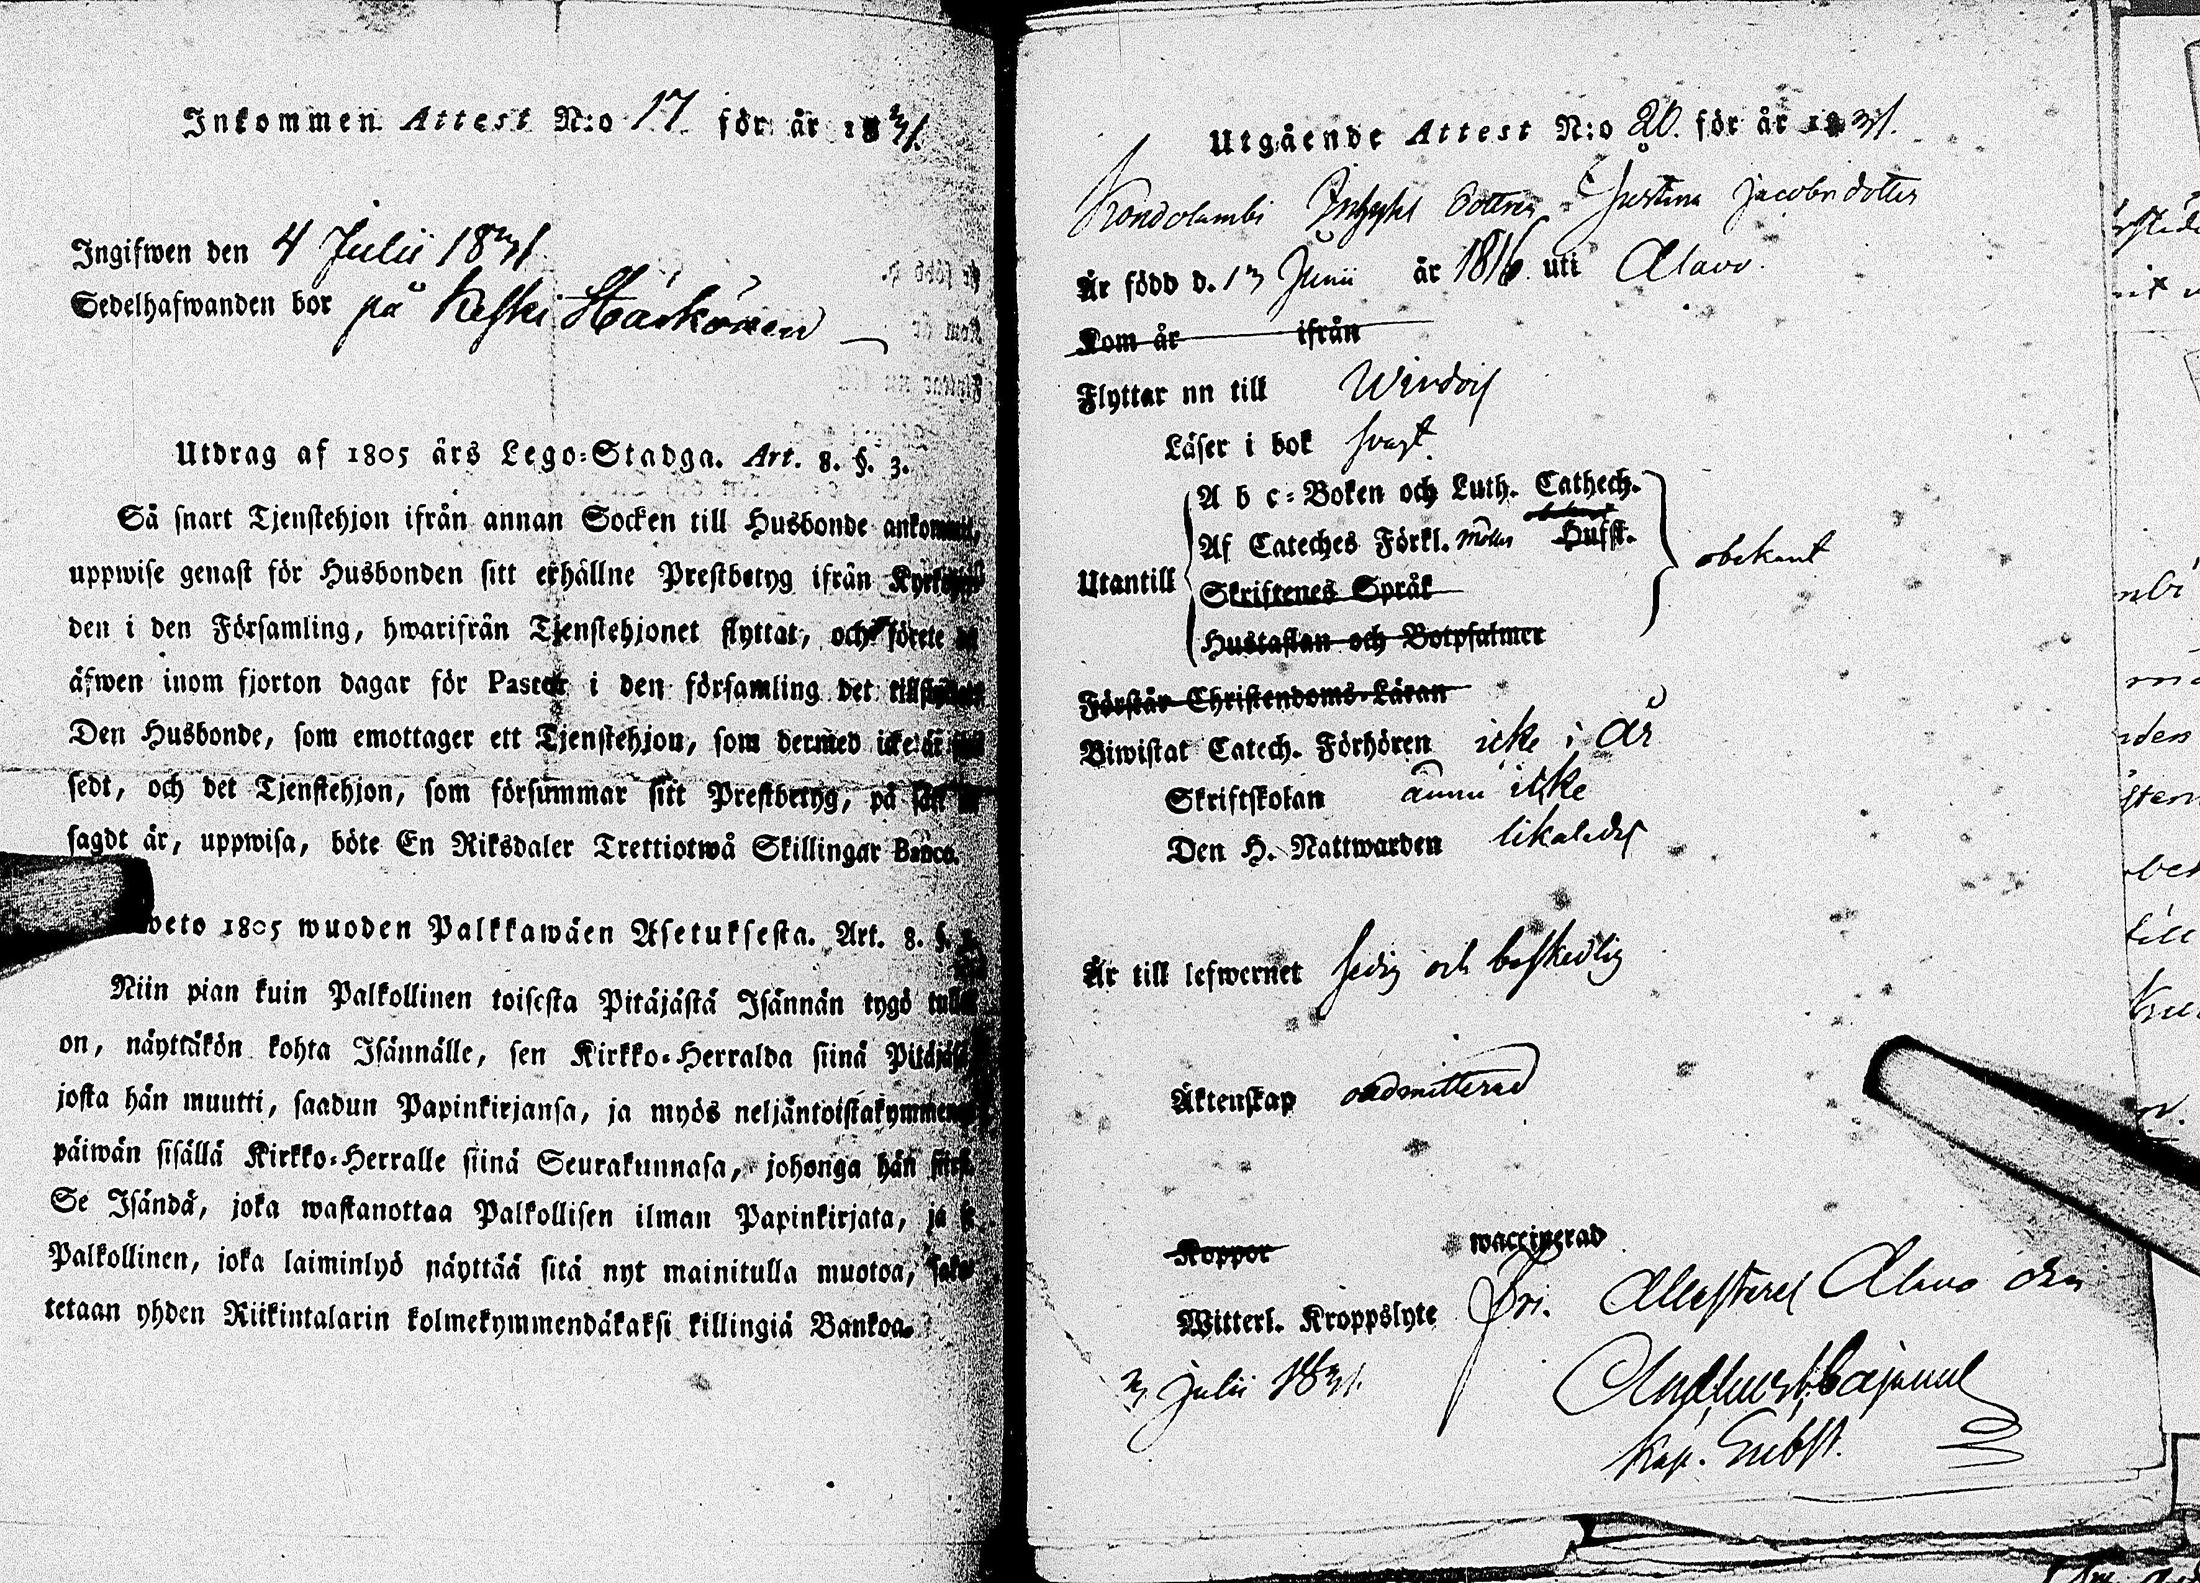 Inkommen Attest N:o 17 för år 1831.
Ingifwen den 4 Julii 1831
Sedelhafwanden bor på Keski Härkönen
Utdrag af 1805 års Lego-Stadga. Art. 8. §. 3.
Så snart Tjenstehjon ifrån annan Socken till Husbonde ankommit,
uppwise genast för Husbonden sitt erhållne Prestbetyg ifrån
den i den Församling, hwarifrån Tjenstehjonet flyttat, och förete
äfwen inom fjorton dagar för Pastor i den församling det
Den Husbonde, som emottager ett Tjenstehjon, som dermed icke är
sedt, och det Tjenstehjon, som försummar sitt Prestbetyg, på sätt
sagdt är, uppwisa, böte En Riksdaler Trettiotwå Skillingar Banco.
weto 1805 wuoden Palkkawäen Asetuksesta. Art. 8. §.
Niin pian kuin Palkollinen toisesta Pitäjästä Isännän tygö tullut
on, näyttäkön kohta Isännälle, sen Kirkko-Herralda siinä Pitäjäsä
josta hän muutti, saadun Papinkirjansa, ja myös neljäntoistakymmenen
päiwän sisällä Kirkko-Herralle siinä Seurakunnasa, johonga hän
Se Isändä, joka wastanottaa Palkollisen ilman Papinkirjata, ja se
Palkollinen, joka laiminlyö näyttää sitä nyt mainitulla muotoa, sako
tetaan yhden Riikintalarin kolmekymmendäkaksi killingiä Bankoa.
Utgående Attest N:o 20. för år 1831.
dottren Justina Jacobsdotter
Är född d. 13 Junii år 1816 uti Alavo.
Kom år ifrån
Flyttar nu till Wirdois
Läser i bok svagt
A b c-Boken och Luth. Cathech.
Af Cateches Förkl. Hufst.
Utantill
Skriftenes Språk
obekant
Hustaflan och Botpsalmer
Förstår Christendoms-Läran
Biwistat Catech. Förhören icke i år
Skriftskolan ännu icke
Den H. Nattwarden likaledes
Är till lefwernet sedig och beskedlig
Äktenskap oadmitterad
Koppor waccinerad
Witterl. Kroppslyte fri. Attesteras Alavo den
3 Julii 1831.
Kap. Subst.